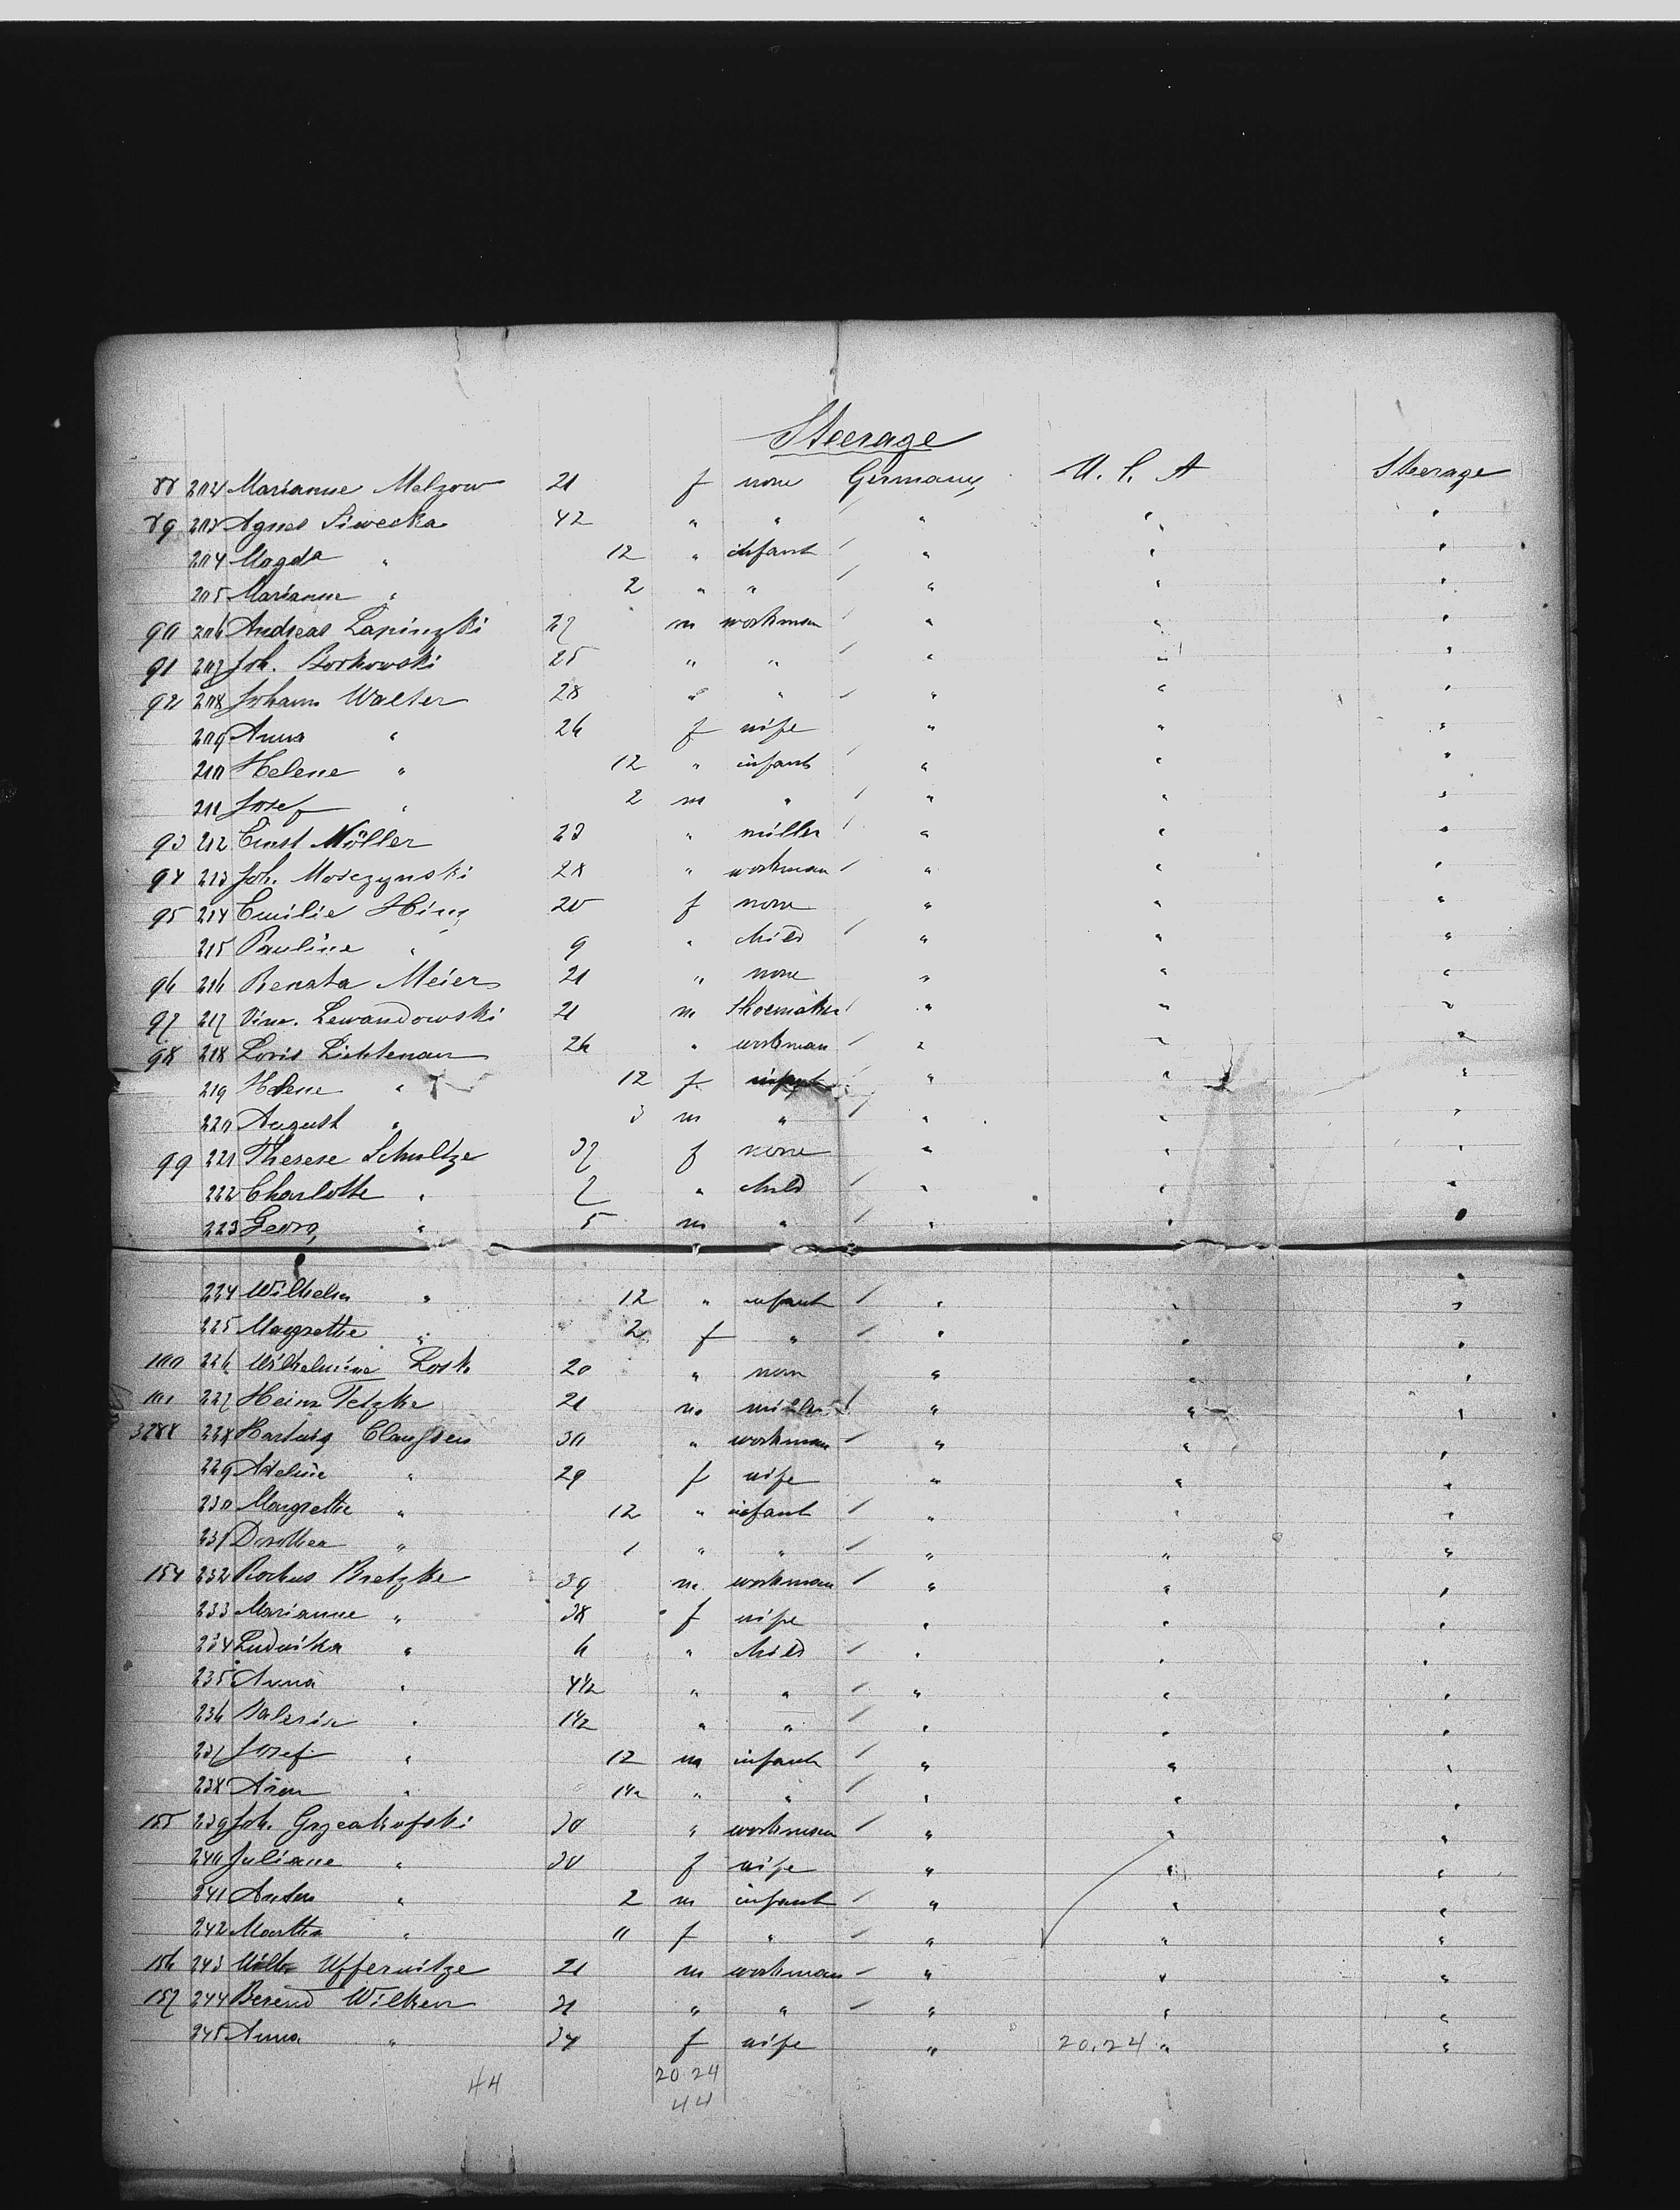 Steerage
88 202 Marianne Melzow 21 f none Germany U. S. A Steerage
89 203 Agnes Siwecka 42 " " " " "
204 Magda " 12 " infant / " " "
205 Mariann " 2 " " / " " "
90 206 Andreas Lapinzki 27 m workman / " " "
91 207 Joh. Borkowski 25 " " / " " "
92 208 Johann Walter 28 " " / " " "
209 Anna " 26 f wife " " "
210 Helene " 12 " infant / " " "
211 Josef " 2 m " / " " "
93 212 Ernst Möller 23 " miller / " " "
94 213 Joh. Morczynski 28 " workman / " " "
95 214 Emilie Hinz 20 f none " " "
215 Pauline " 9 " child / " " "
96 216 Renata Meier 21 " none " " "
97 217 Vinc. Lewandowski 21 m Shoemaker / " " "
98 218 Loris Lichtenau 26 " workman / " " "
219 Helene " 12 f infant / " " "
220 August " 3 m " / " " "
99 221 Therese Schultze 37 f none " " "
222 Charlotte " 7 " child / " " "
223 Georg " 5 m " / " " "
224 Wilhelm " 12 " infant / " " "
225 Magrethe " 2 f " / " " "
100 226 Wilhelmine Losk 20 " non " " "
101 227 Heinr Tetzke 21 m miller / " " "
3288 228 Hartwig Claussen 30 " workman / " " "
229 Adeline " 29 f wife " " "
230 Magrethe " 12 " infant / " " "
231 Dorothea " 1 " " / " " "
154 232 Rochus Bretzke 39 m workman / " " "
233 Marianne " 38 f wife " " "
234 Ludwika " 6 " child / " " "
235 Anna " 4 1/2 " " / " " "
236 Valeria " 1 1/2 " " / " " "
237 Josef " 12 m infant / " " "
238 " " " / " " "
155 239 Joh. 30 " workman / " " "
240 Juliane " 30 f wife " " "
241 Anton " 2 m infant / " " "
242 Martha " 0 f " / " " "
156 243 Wilh Uffernitze 21 m workman / " " "
157 244 Berend Wilken 31 " " / " " "
245 Anna " 34 f wife " 20.24 " "
44 20 24
44